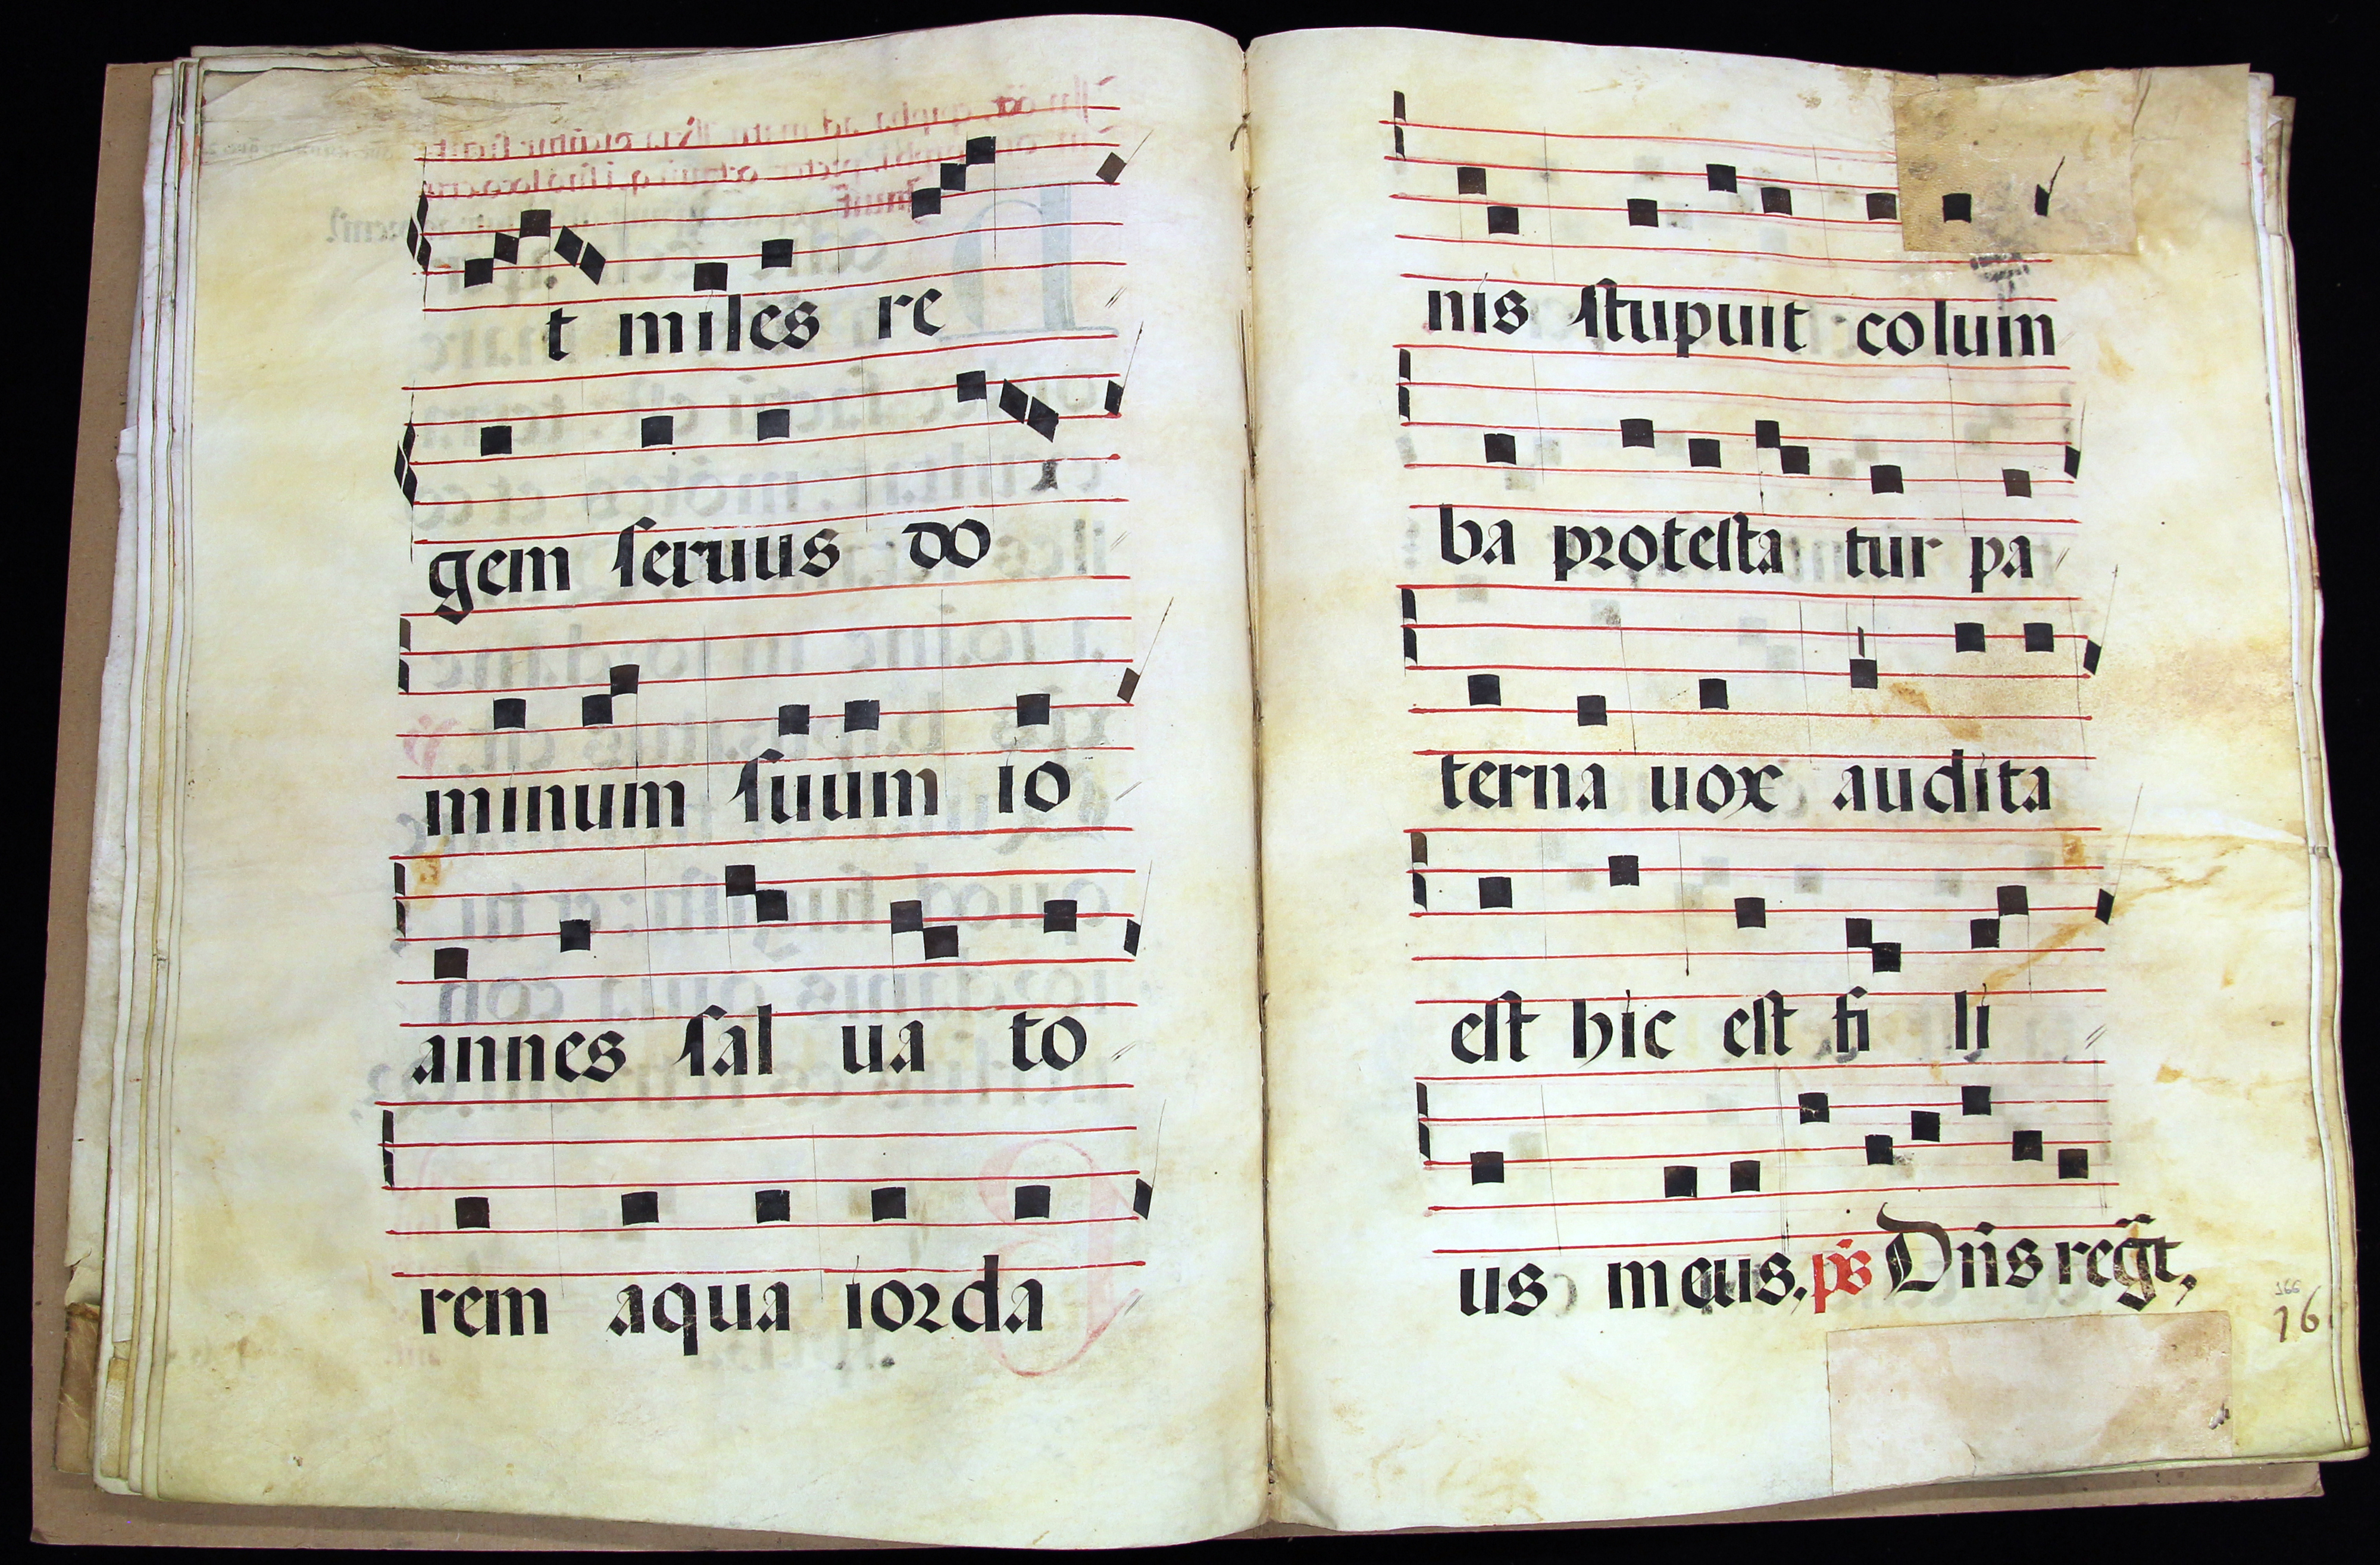 t miles re
gem seruus do
minum suum io
annes sal ua to
rem aqua iorda
nis stupuit colum
ba protesta tur pa
terna uox audita
est hic est fi li
us meus. ps Dñs regt,
166
16